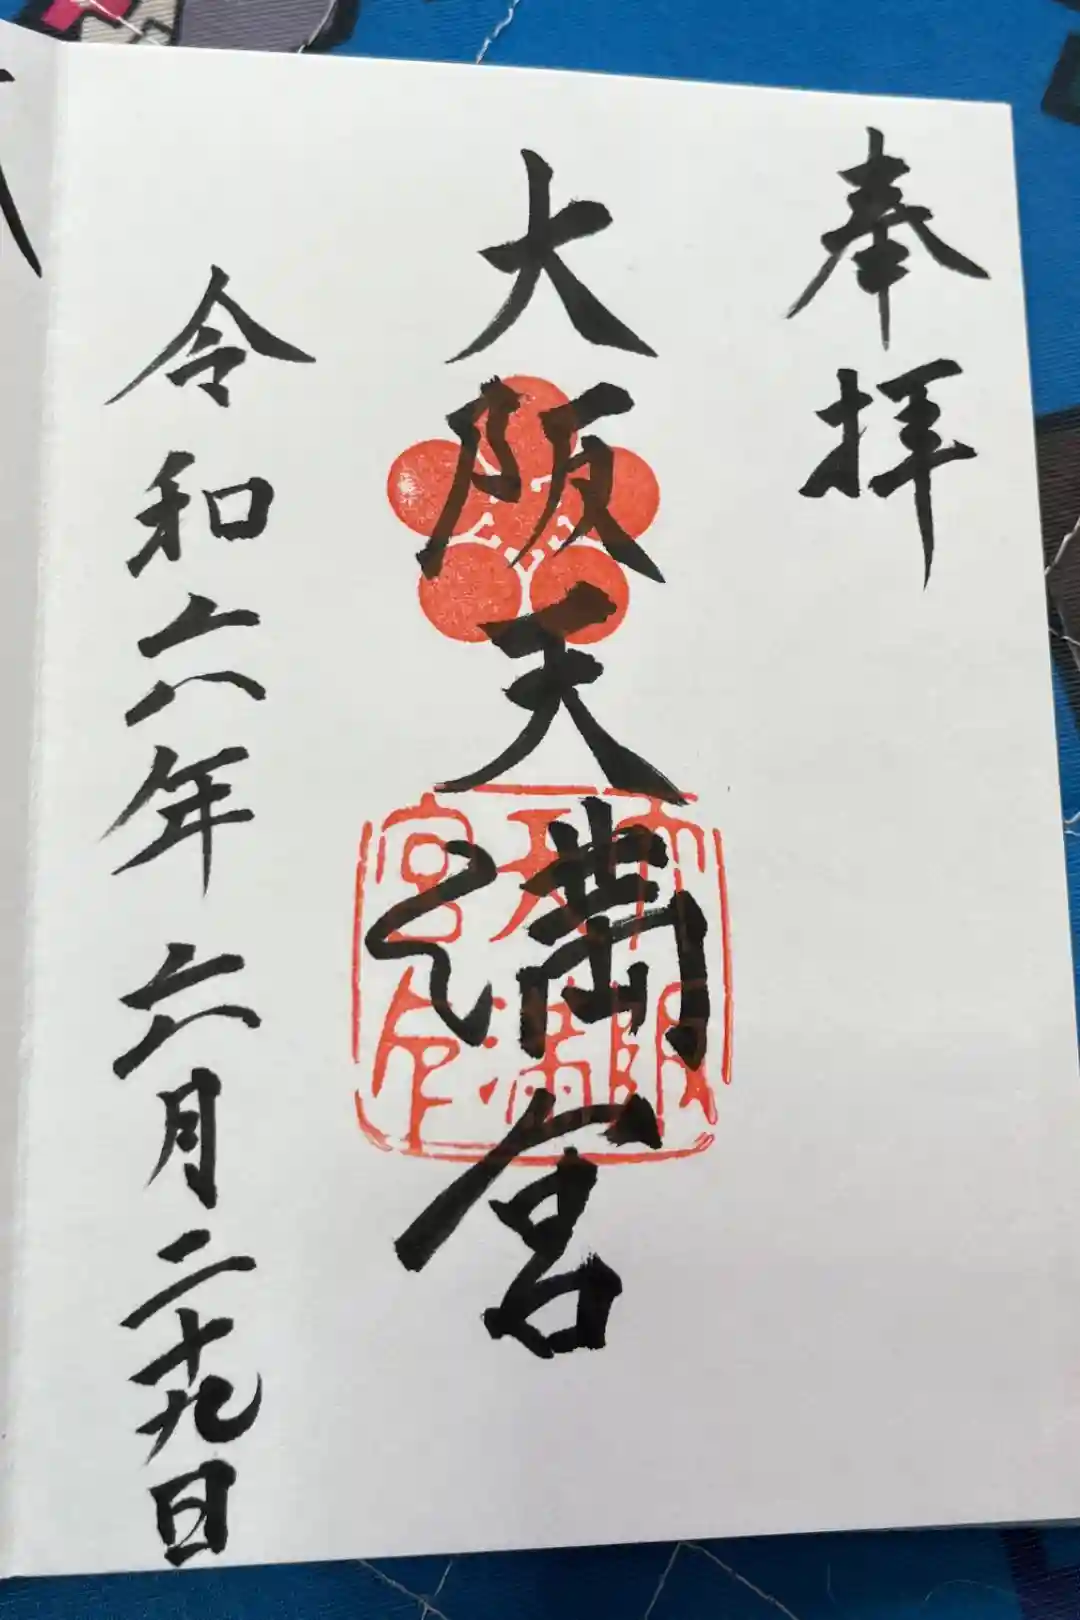 奉拝
大阪天満宮
大阪天満宮印
令和六年六月二十九日